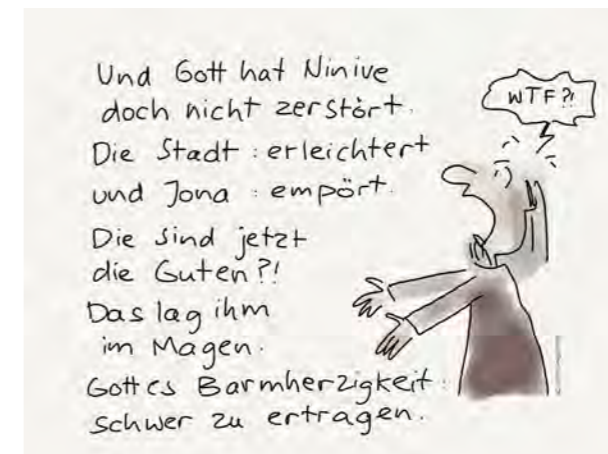 Und Gott hat Ninive
doch nicht zerstört.
Die Stadt : erleichtert
und Jona : empört.
Die sind jetzt
die Guten?!
Das lag ihm
im Magen.
Gottes Barmherzigkeit :
schwer zu ertragen.
WTF?!